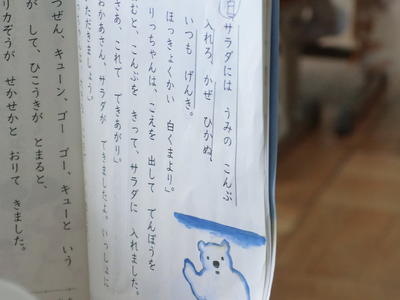 白 サラダには うみの こんぶ
入れろ、かぜ ひかぬ、
いつも げんき。
ほっきょくかい 白くまより」
りっちゃんは、こえを 出して でんぽうを
むと、こんぶを きって、サラダに 入れました。
さあ、これで できあがり」
おかあさん、サラダが できましたよ。いっしょに
ただきましょう」
つぜん、キューン、ゴー ゴー、キューと いう
が して、ひこうきが とまると、
リカぞうが せかせかと おりて きました。